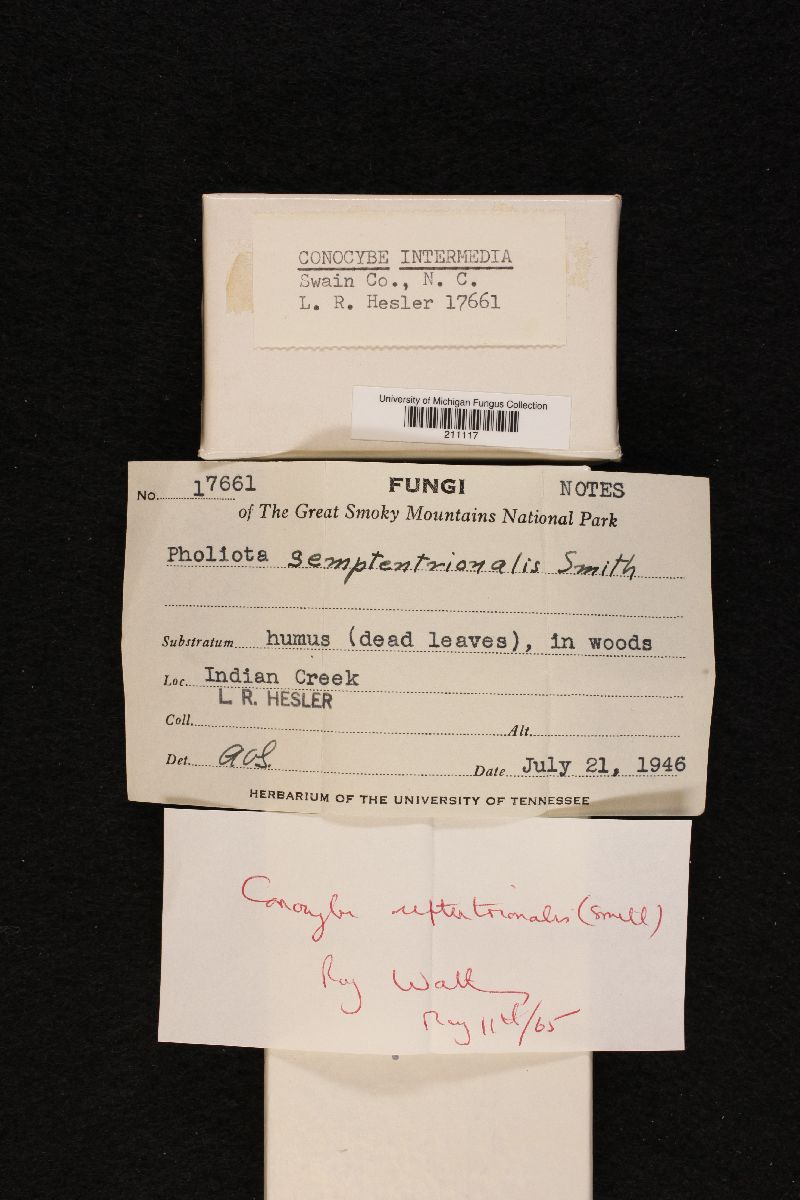 CONOCYBE INTERMEDIA
Swain Co., N. C.
L. R. Hesler 17661
University of Michigan Fungus Collection
211117
No. 17661 FUNGI NOTES
of The Great Smoky Mountains National Park
Pholiota semptentrionalis Smith
Substratum humus (dead leaves), in woods
Loc. Indian Creek
L. R. HESLER
Coll. Alt.
Det. Date July 21, 1946
HERBARIUM OF THE UNIVERSITY OF TENNESSEE
Conocybe septentrionalis
Roy
May 11th/65